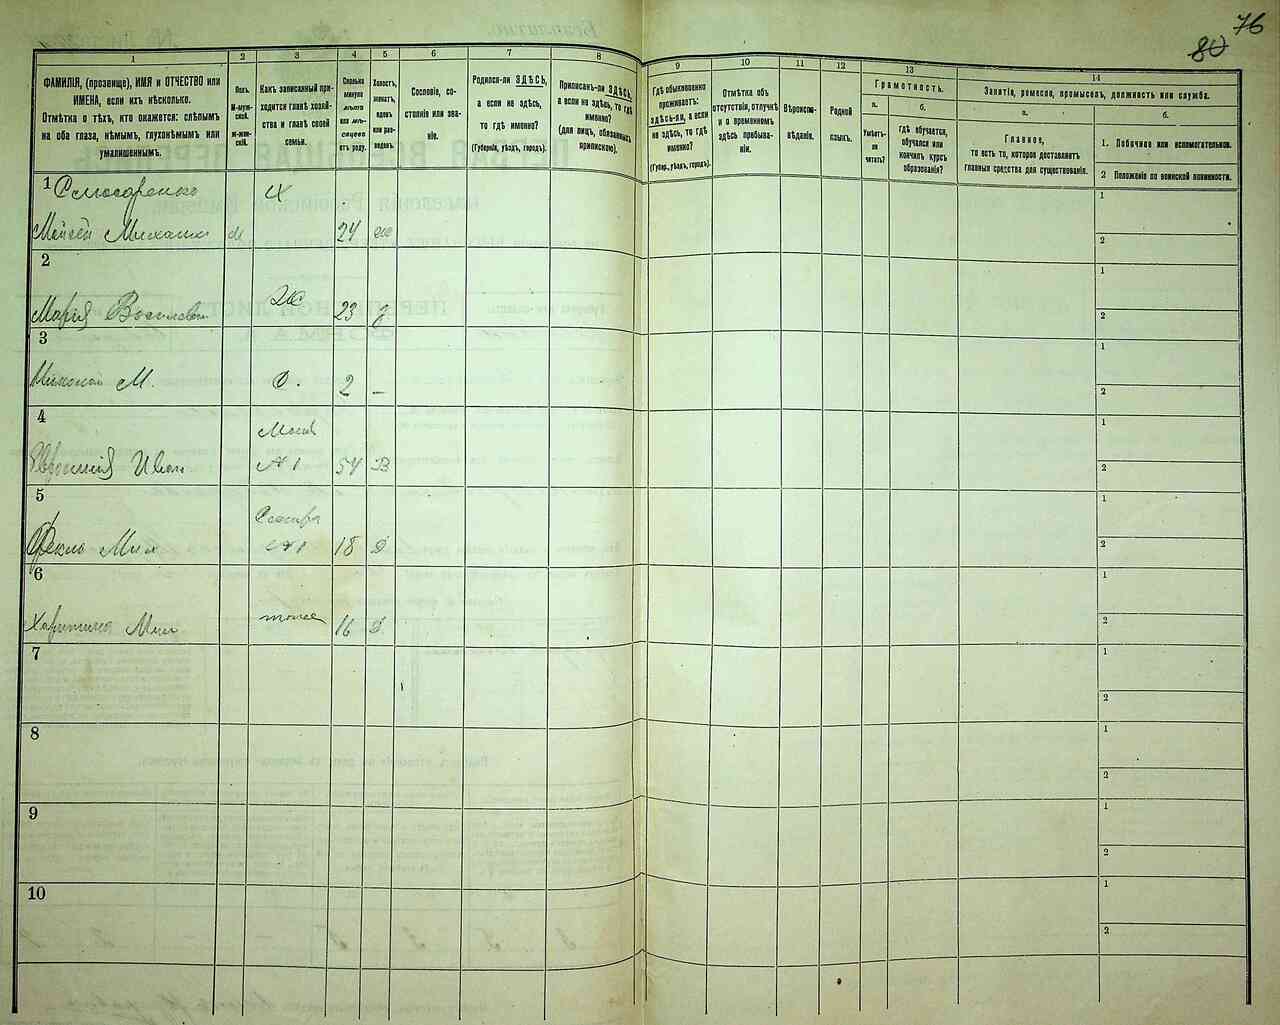 76
80
1
2
3
4
5
6
7
8
ФАМИЛІЯ, (прозвище), ИМЯ и ОТЧЕСТВО или
ИМЕНА, если ихъ нѣсколько.
Отмѣтка о тѣхъ, кто окажется: слѣпымъ
на оба глаза, нѣмымъ, глухонѣмымъ или
умалишеннымъ.
Полъ.
М-муж-
ской.
ж-жен-
скій.
Какъ записанный при-
ходится главѣ хозяй-
ства и главѣ своей
семьи.
Сколько
минуло
лѣтъ
или мѣ-
сяцевъ
отъ роду.
Холостъ,
женатъ,
вдовъ
или раз-
веденъ.
Сословіе, со-
стояніе или зва-
ніе.
Родился-ли ЗДѢСЬ,
а если не здѣсь,
то гдѣ именно?
(Губернія, уѣздъ, городъ).
Приписанъ-ли ЗДѢСЬ,
а если не здѣсь, то гдѣ
именно?
(для лицъ, обязанныхъ
припискою).
9
10
11
12
13
14
Гдѣ обыкновенно
проживаетъ:
здѣсь-ли, а если
не здѣсь, то гдѣ
именно?
(Губер., уѣздъ, городъ).
Отмѣтка объ
отсутствіи, отлучкѣ
и о временномъ
здѣсь пребыва-
ніи.
Вѣроиспо-
вѣданіе.
Родной
языкъ.
Грамотность.
а.
б.
Умѣетъ-
ли
читать?
гдѣ обучается,
обучался или
кончилъ курсъ
образованія?
Занятіе, ремесло, промыселъ, должность или служба.
а.
б.
Главное,
то есть то, которое доставляетъ
главныя средства для существованія.
1. Побочное или вспомогательное.
2 Положеніе по воинской повинности.
1 Слюсаренко
Мойсей Михайл м 24 ж
1
2
2
Мария Васильев 23 з
1
2
3
Миколай М. С. 2 –
1
2
4
Мать
Иван № 1 54 В
1
2
5
Сестра
Фекла Мих № 1 18 д
1
2
6
Харитина Мих тоже 16 д
1
2
7
1
2
8
1
2
9
1
2
10
1
2